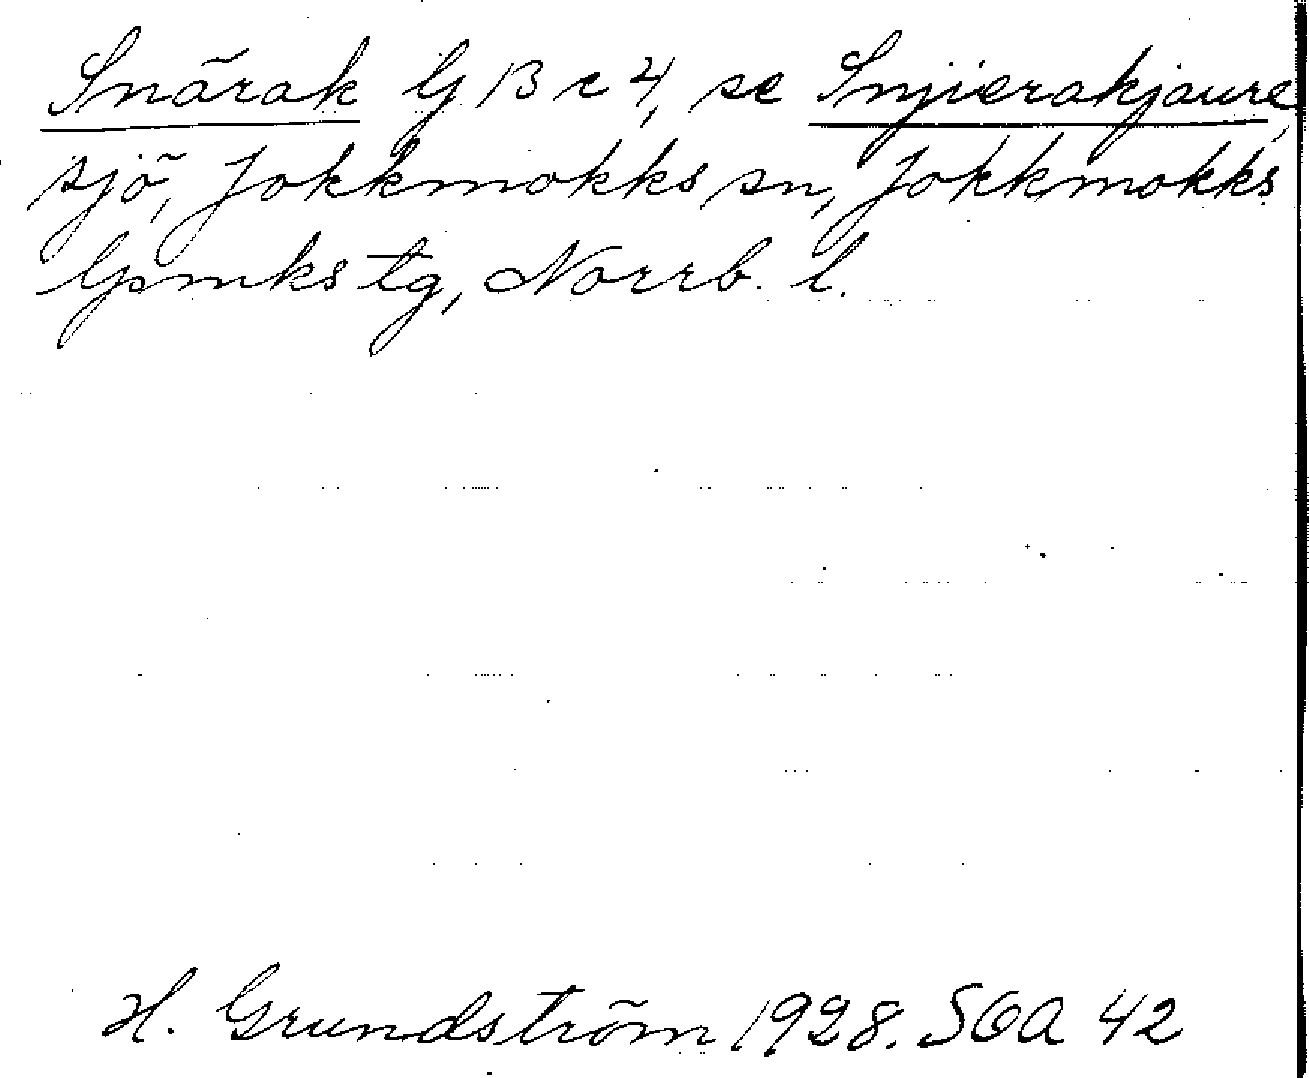 Snärak G B c 4, se Snjierakjaure,
sjö, Jokkmokks sn, Jokkmokks
lpmks tg, Norrb. l.
H. Grundström 1928. SOA 42